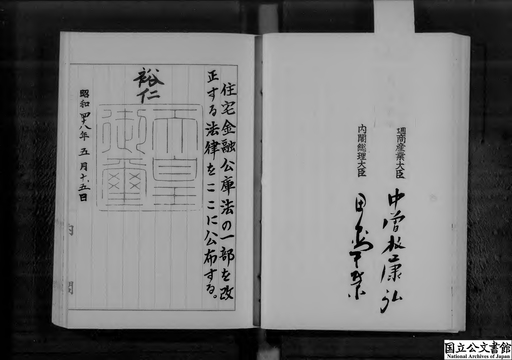 通商産業大臣 中曽根康弘
内閣総理大臣 田中角榮
住宅金融公庫法の一部を改
正する法律をここに公布する。
裕仁
天皇
御璽
昭和四十八年五月十五日
国立公文書館
National Archives of Japan